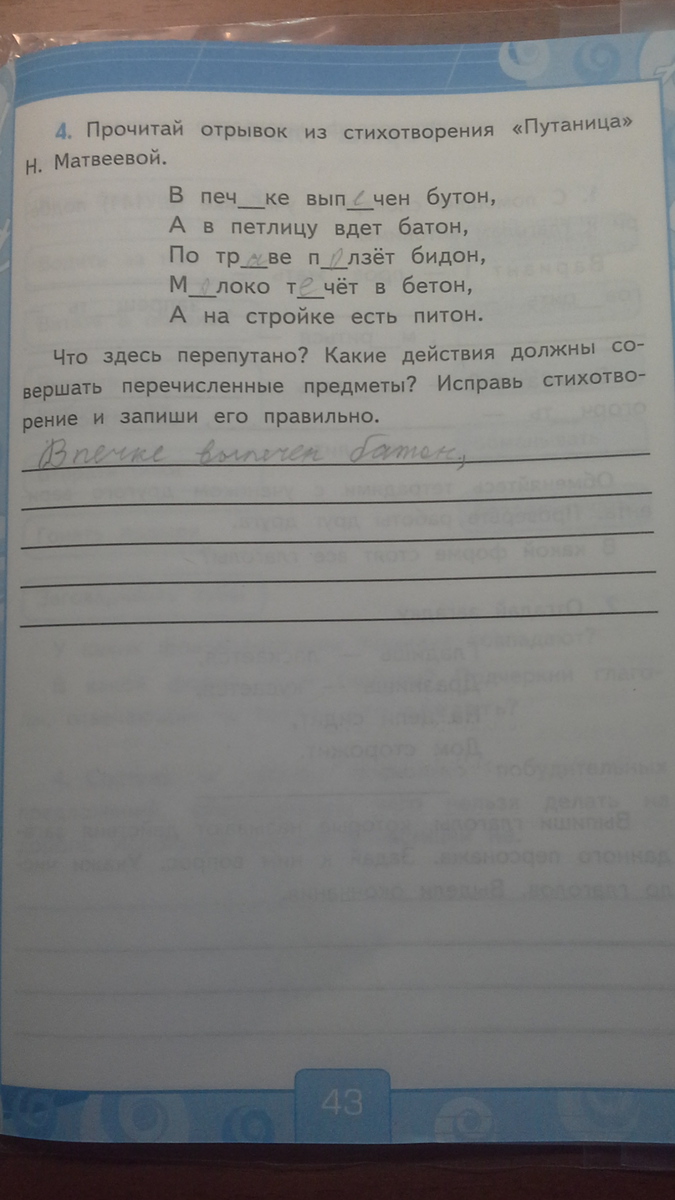 4. Прочитай отрывок из стихотворения «Путаница»
Н. Матвеевой.
В печ__ке вып е чен бутон,
А в петлицу вдет батон,
По тр а ве п о лзёт бидон,
М о локо т е чёт в бетон,
А на стройке есть питон.
Что здесь перепутано? Какие действия должны со-
вершать перечисленные предметы? Исправь стихотво-
рение и запиши его правильно.
В печке выпечен батон,
43